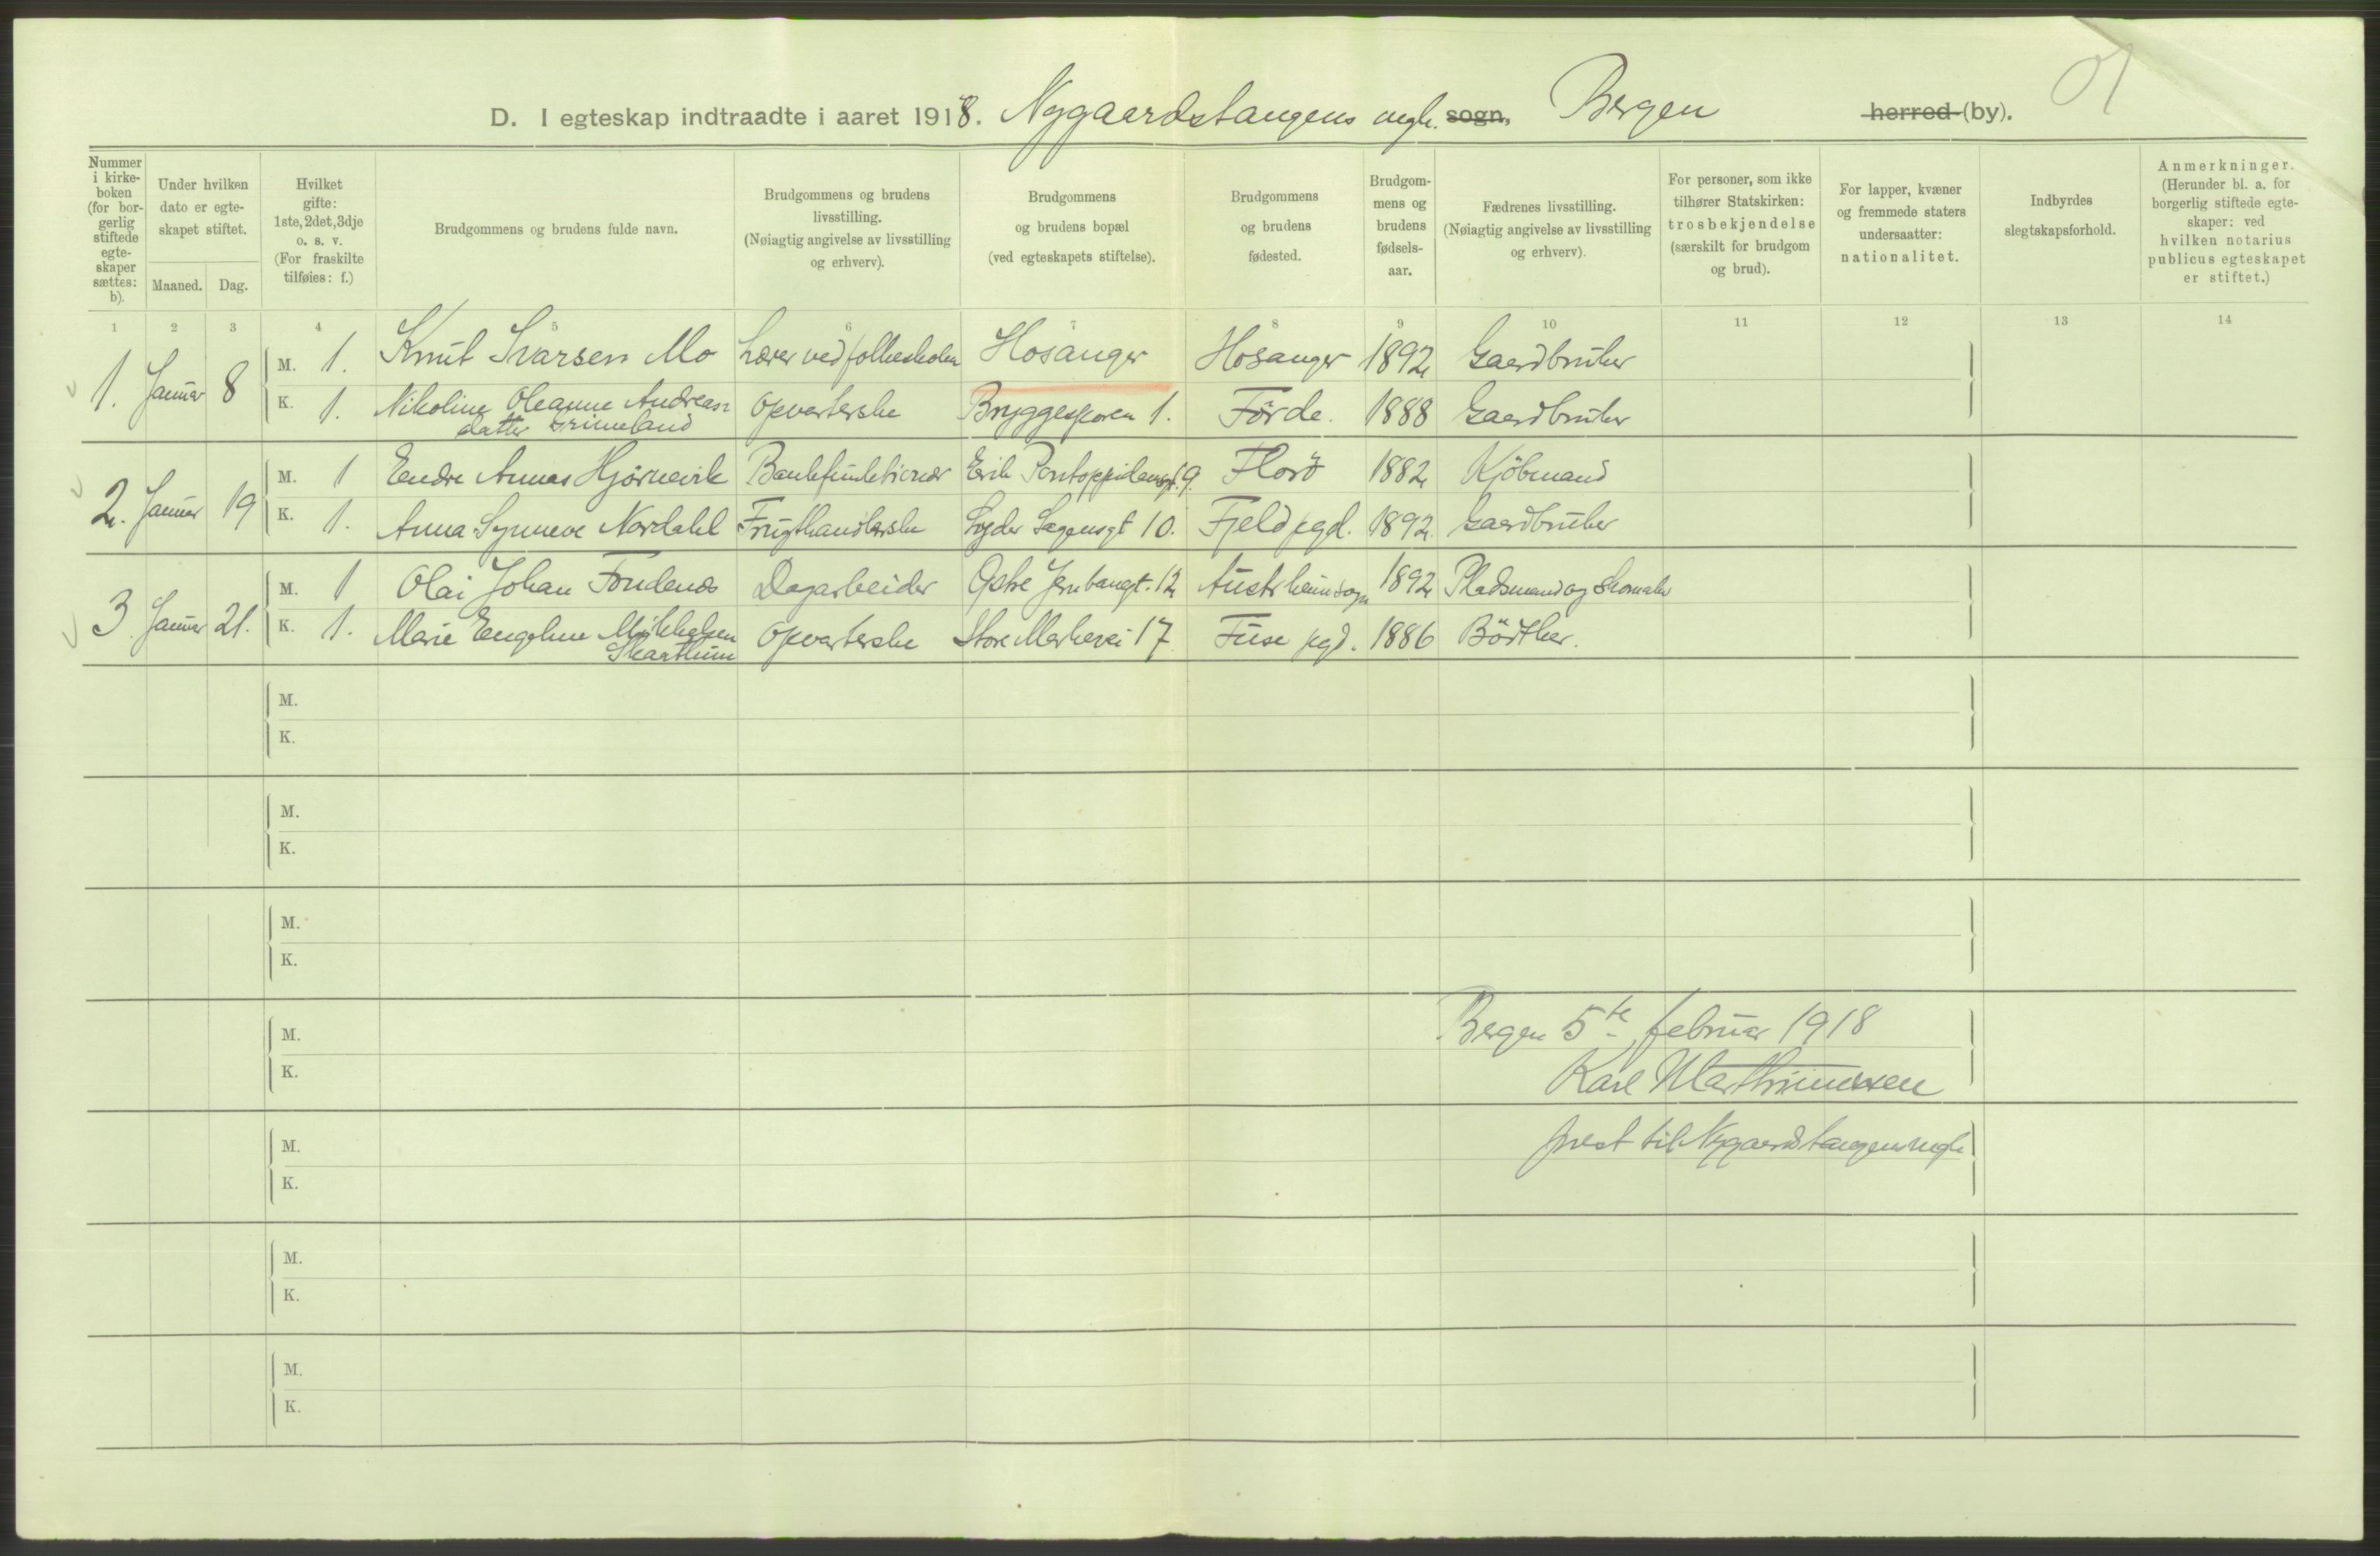 D. I egteskap indtraadte i aaret 1918. Nygaardstangens mgh. sogn, Bergen herred (by).
Nummer i kirkeboken (for borgerlig stiftede egteskaper sættes: b).
Under hvilken dato er egteskapet stiftet.
Maaned. Dag.
Hvilket gifte: 1ste, 2det, 3dje o. s. v. (For fraskilte tilføies: f.)
Brudgommens og brudens fulde navn.
Brudgommens og brudens livsstilling. (Nøiagtig angivelse av livsstilling og erhverv).
Brudgommens og brudens bopæl (ved egteskapets stiftelse).
Brudgommens og brudens fødested.
Brudgommens og brudens fødselsaar.
Fædrenes livsstilling. (Nøiagtig angivelse av livsstilling og erhverv).
For personer, som ikke tilhører Statskirken: trosbekjendelse (særskilt for brudgom og brud).
For lapper, kvæner og fremmede staters undersaatter: nationalitet.
Indbyrdes slegtskapsforhold.
Anmerkninger. (Herunder bl. a. for borgerlig stiftede egteskaper: ved hvilken notarius publicus egteskapet er stiftet.)
1 2 3 4 5 6 7 8 9 10 11 12 13 14
1. Januar 8 M. 1. Knut Ivarsen Mo Lærer ved folkeskolen Hosanger Hosanger 1892 Gaardbruker
K. 1. Nikoline Oleanne Andreas Opvarterske Bryggesporen 1. Förde. 1888 Gaardbruker
datter Grimeland
2. Januar 19 M. 1 Endre Annas Hjörnevik Bankfunktionær Erik Pontoppidansgt. 9. Florö 1882 Kjöbmand
K. 1. Anna Synneve Nordahl Frugthandlerske Lyder Sagensgt 10. Fjeld pgd. 1892. Gaardbruker
3. Januar 21. M. 1 Olai Johan Fondenæs Dagarbeider Østre Jernbanegt. 12 Austrheim sogn 1892 Pladsmand og Skomaker
K. 1. Marie Engeline Mikkelsen Opvarterske Store Markevei 17 Fuse pgd. 1886 Bödker.
Skaathun
M.
K.
M.
K.
M.
K.
M.
K.
Bergen 5te februar 1918
Karl Marthinussen
prest til Nygaardstangens mgh
M.
K.
M.
K.
M.
K.